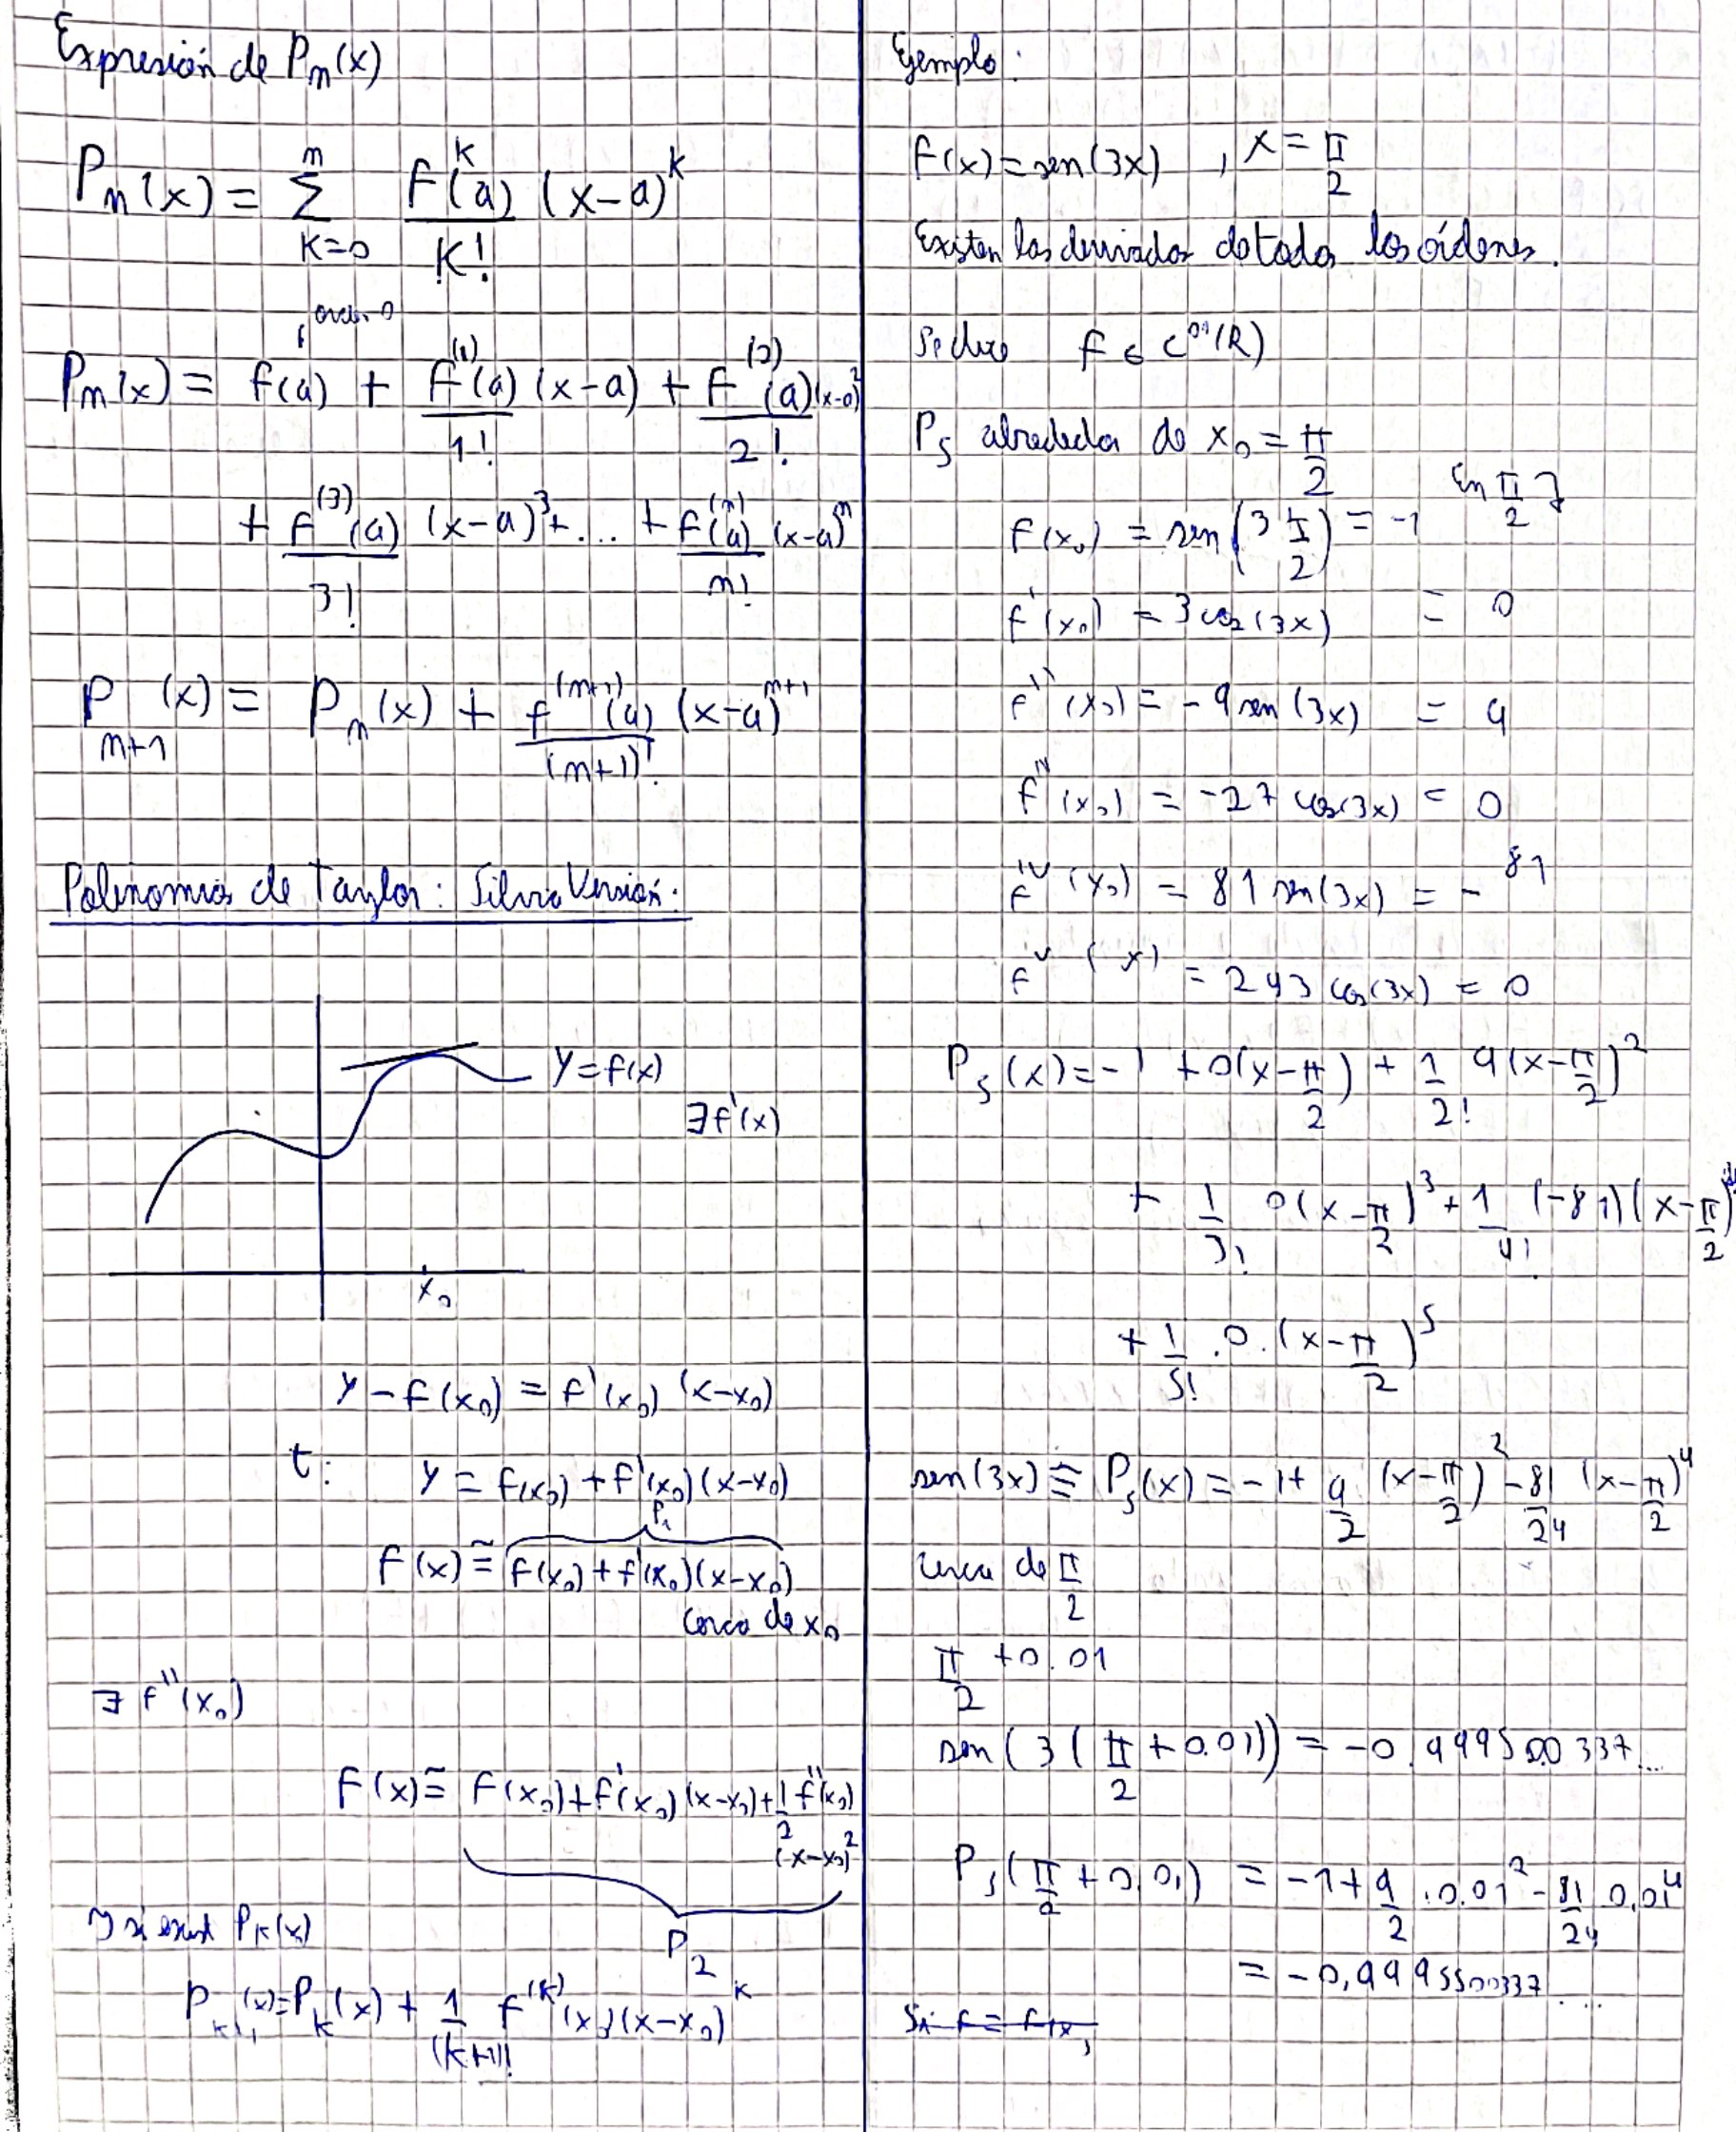 Expresión de Pn(x)
Pn(x) = Σ_{K=0}^{n} f^K(a)/K! (x-a)^K
orden 0
Pn(x) = f(a) + f^(1)(a)/1! (x-a) + f^(2)(a)/2! (x-a)^2
+ f^(3)(a)/3! (x-a)^3 + ... + f^(n)(a)/n! (x-a)^n
P_{n+1}(x) = Pn(x) + f^(n+1)(a)/(n+1)! (x-a)^{n+1}
Polinomios de Taylor: Silvia Versión:
y=f(x)
∃f'(x)
x₀
y - f(x₀) = f'(x₀) (x-x₀)
t: y = f(x₀) + f'(x₀)(x-x₀)
P₁
f(x) ≅ f(x₀) + f'(x₀)(x-x₀)
cerca de x₀
∃ f''(x₀)
f(x) ≅ f(x₀) + f'(x₀)(x-x₀) + 1/2 f''(x₀)
(x-x₀)^2
P₂
y si P_k(x)
P_{k+1}(x) = P_k(x) + 1/(k+1)! f^(k)(x₀)(x-x₀)^k
Ejemplo:
f(x) = sen(3x) , x = π/2
Existen las derivadas de todos los órdenes.
Se dice f ∈ C^∞(R)
P₅ alrededor de x₀ = π/2
En π/2
f(x₀) = sen(3 π/2) = -1
f'(x₀) = 3 cos(3x) = 0
f''(x₀) = -9 sen(3x) = 9
f'''(x₀) = -27 cos(3x) = 0
f^IV(x₀) = 81 sen(3x) = -81
f^V(x) = 243 cos(3x) = 0
P₅(x) = -1 + 0(x-π/2) + 1/2! 9(x-π/2)^2
+ 1/3! 0(x-π/2)^3 + 1/4! (-81)(x-π/2)
+ 1/5! . 0 . (x-π/2)^5
sen(3x) ≅ P₅(x) = -1 + 9/2 (x-π/2)^2 - 81/24 (x-π/2)^4
cerca de π/2
π/2 + 0.01
sen(3(π/2 + 0.01)) = -0.999500337...
P₅(π/2 + 0,01) = -1 + 9/2 . 0.01^2 - 81/24 0,01^4
= -0,99955500337...
Si f = f(x)